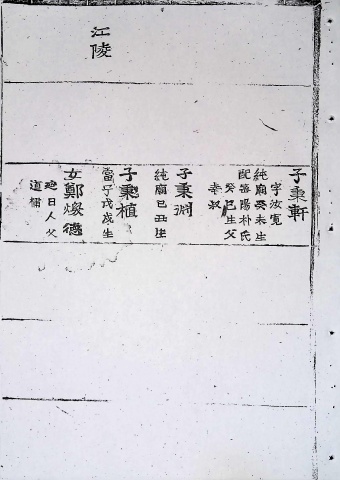 江陵
子秉軒
字汝寬
純廟癸未生
配密陽朴氏
癸巳生父
孝叔
子秉淵
純廟己丑生
子秉植
當宁戊戌生
女鄭燦德
迎日人父
道